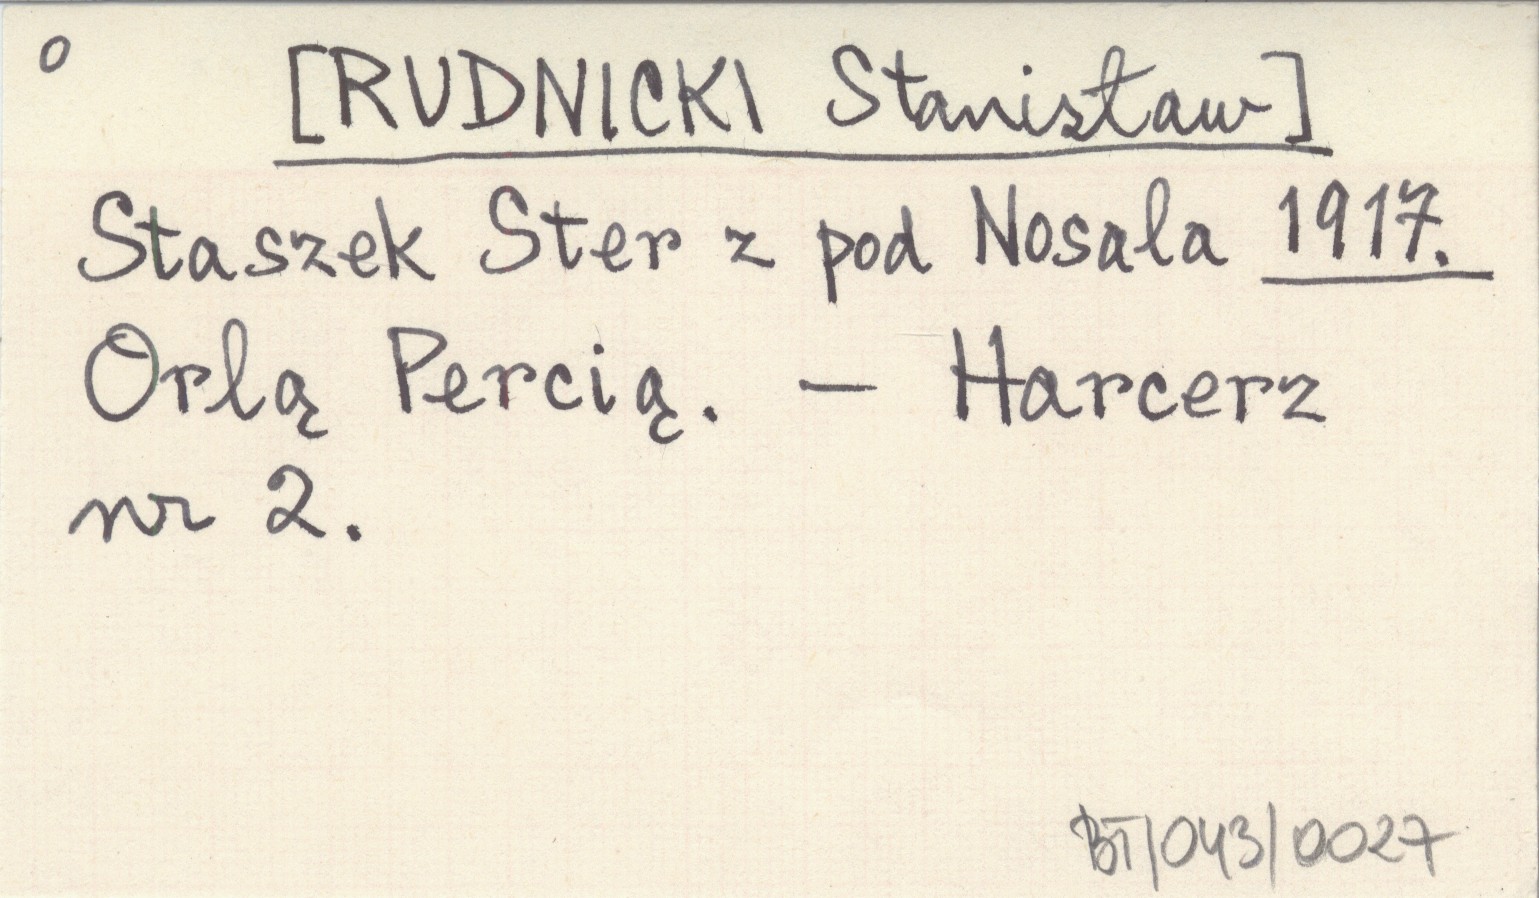 o [RUDNICKI Stanisław]
Staszek Ster z pod Nosala 1917.
Orlą Percią. — Harcerz
nr 2.
BT/043/0027